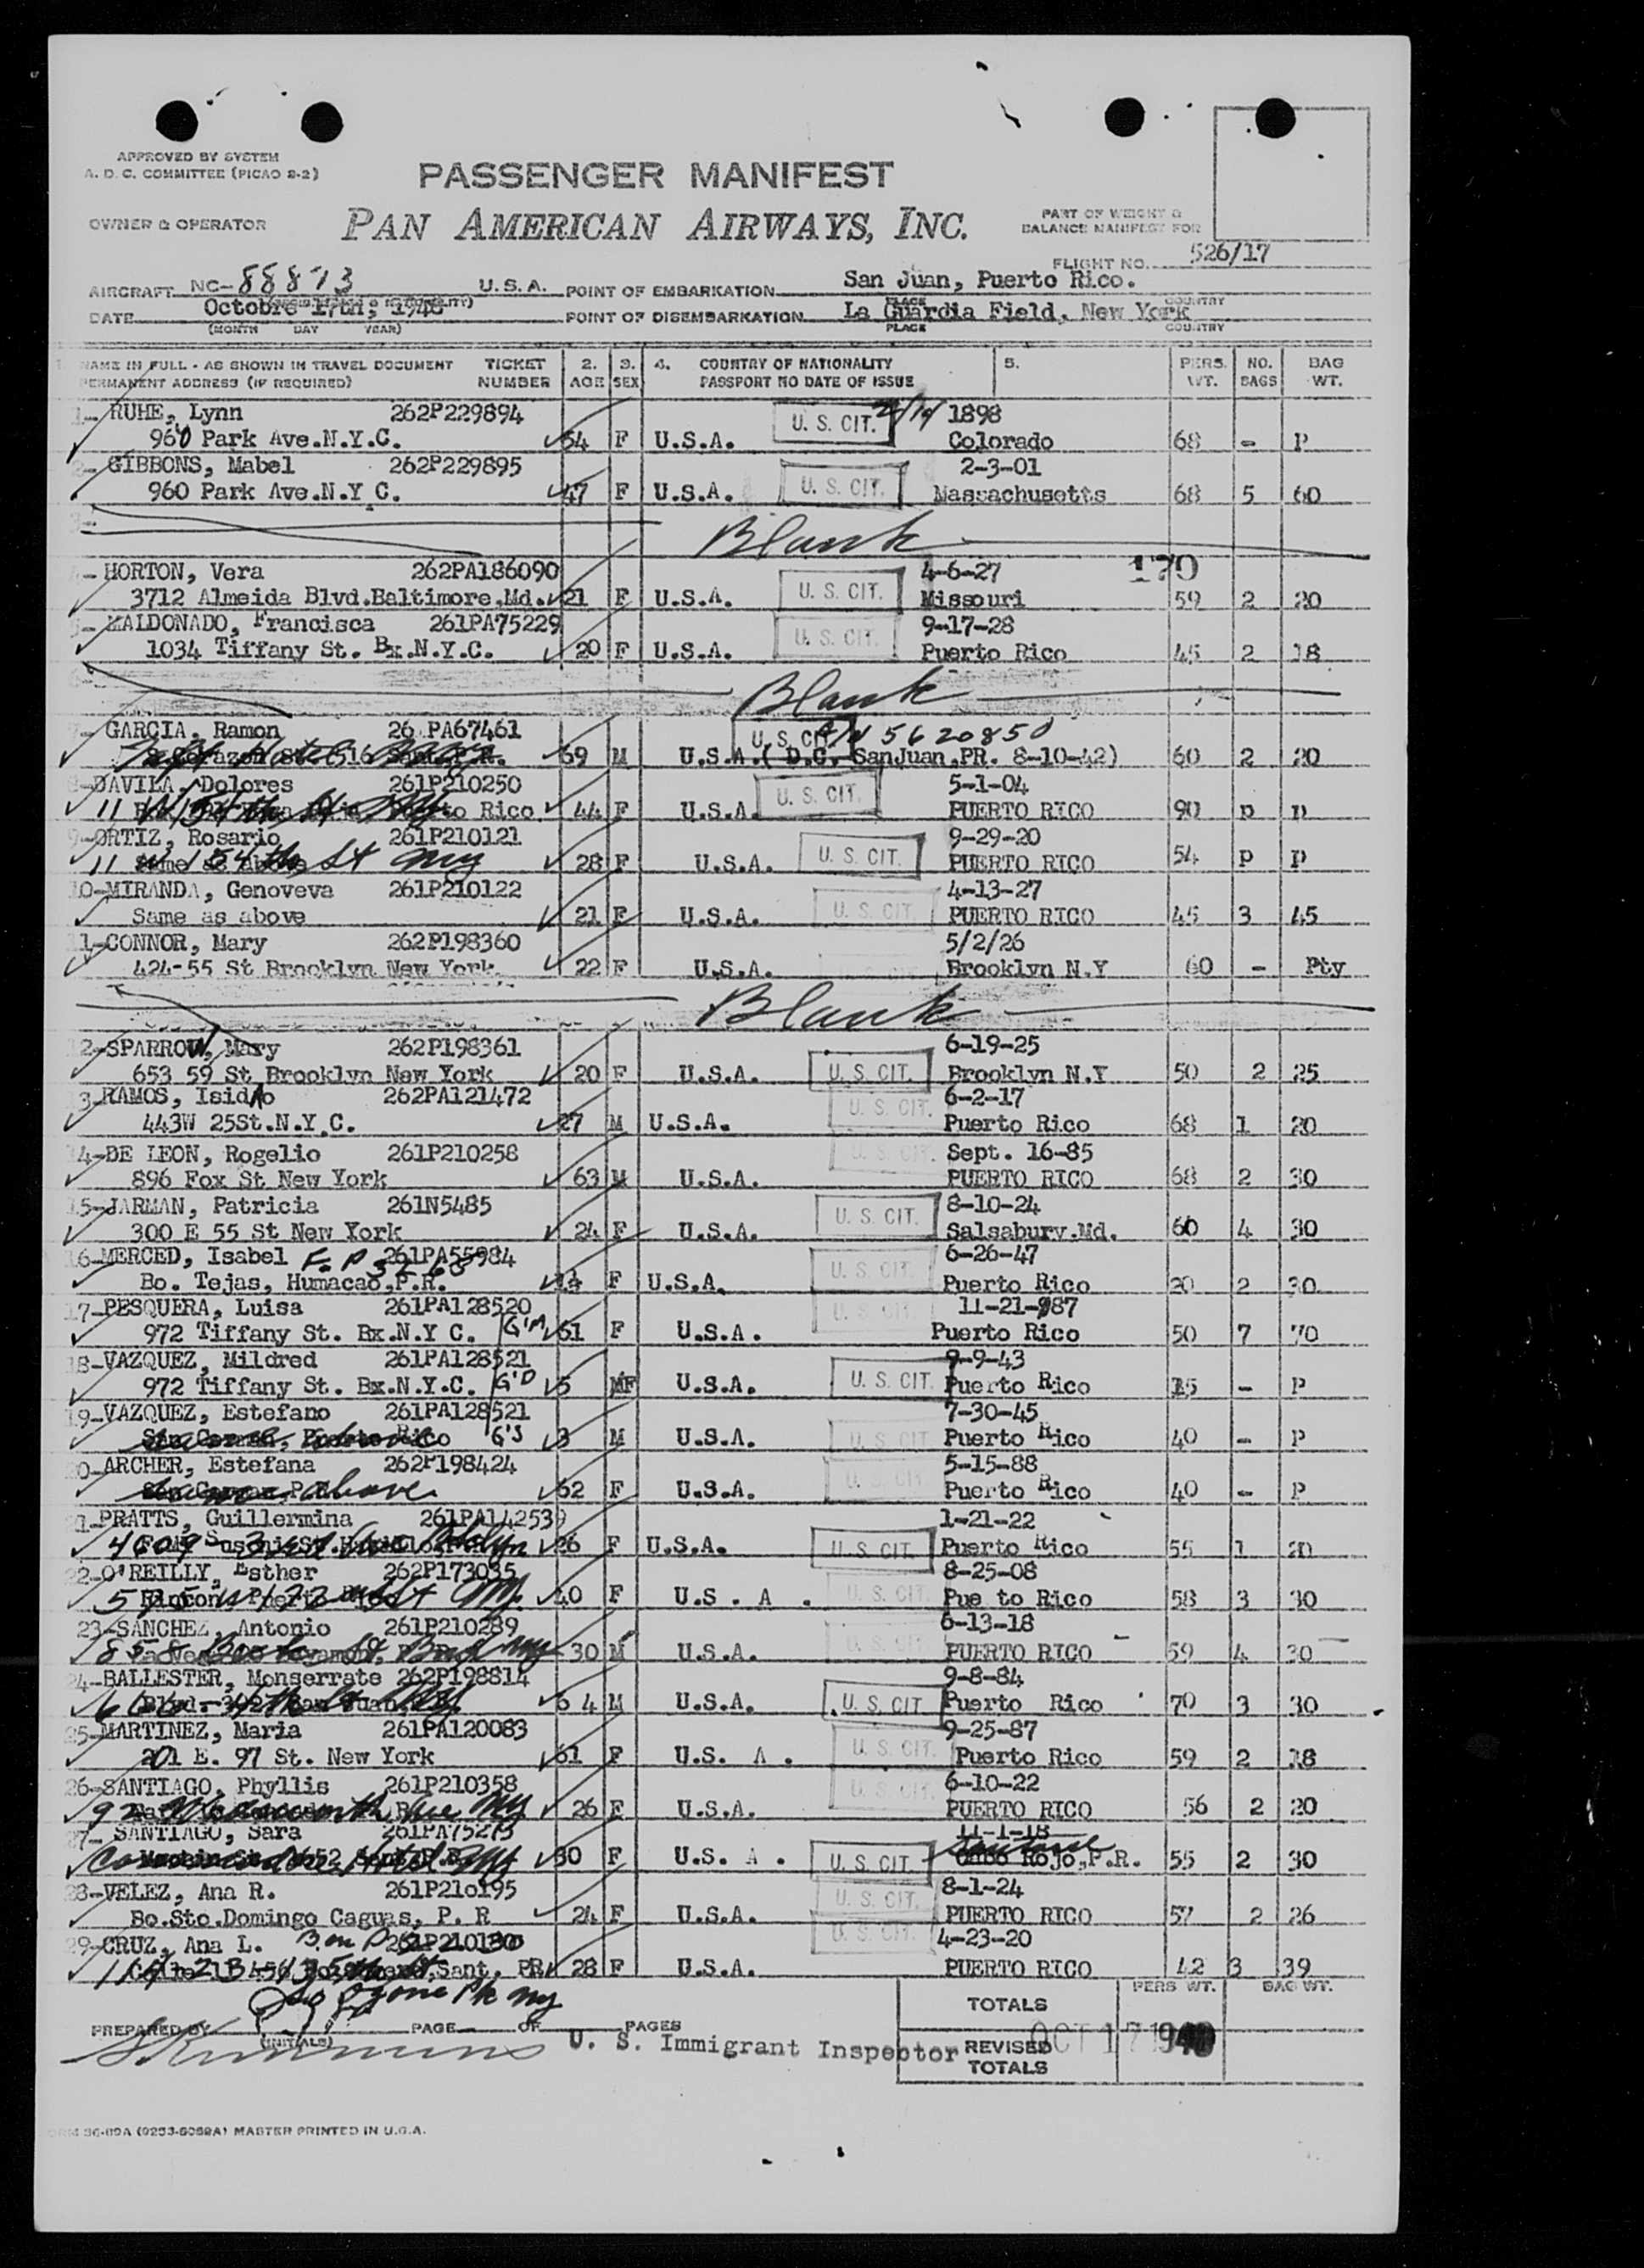 APPROVED BY SYSTEM
A. D. C. COMMITTEE (PICAO 2-2)
PASSENGER MANIFEST
OWNER & OPERATOR PAN AMERICAN AIRWAYS, INC.
PART OF WEIGHT &
BALANCE MANIFEST FOR
FLIGHT NO. 526/17
AIRCRAFT NC-88873 U.S.A. POINT OF EMBARKATION San Juan, Puerto Rico.
PLACE COUNTRY
DATE Octobre 17th, 1948 POINT OF DISEMBARKATION La Guardia Field, New York
(MONTH DAY YEAR) PLACE COUNTRY
NAME IN FULL - AS SHOWN IN TRAVEL DOCUMENT TICKET 2. 3. 4. COUNTRY OF NATIONALITY 5. PERS. NO. BAG
PERMANENT ADDRESS (IF REQUIRED) NUMBER AGE SEX PASSPORT NO DATE OF ISSUE WT. BAGS WT.
1- RUHE, Lynn 262P229894 U. S. CIT. 2/14 1898
960 Park Ave.N.Y.C. 54 F U.S.A. Colorado 68 - P
2- GIBBONS, Mabel 262P229895 2-3-01
960 Park Ave.N.Y C. 47 F U.S.A. U. S. CIT. Massachusetts 68 5 60
3-
Blank
- HORTON, Vera 262PA186090 4-6-27 170
3712 Almeida Blvd.Baltimore.Md. 21 F U.S.A. U. S. CIT. Missouri 59 2 20
5- MALDONADO, Francisca 261PA75229 9-17-28
1034 Tiffany St. Bx.N.Y.C. 20 F U.S.A. U. S. CIT. Puerto Rico 45 2 18
Blank
7- GARCIA. Ramon 26 PA67461 U. S. CIT 5620850
69 M U.S.A.( D.C. SanJuan,PR. 8-10-42) 60 2 20
8-DAVILA, Dolores 261P210250 5-1-04
11 W 154th St 44 F U.S.A. U. S. CIT. PUERTO RICO 90 p p
9-ORTIZ, Rosario 261P210121 9-29-20
11 W 154th St NY 28 F U.S.A. U. S. CIT. PUERTO RICO 54 p p
10-MIRANDA, Genoveva 261P210122 4-13-27
Same as above 21 F U.S.A. U. S. CIT. PUERTO RICO 45 3 45
11-CONNOR, Mary 262P198360 5/2/26
424-55 St Brooklyn New York. 22 F U.S.A. Brooklyn N.Y 60 - Pty
Blank
12-SPARROW, Mary 262P198361 6-19-25
653 59 St Brooklyn New York 20 F U.S.A. U. S. CIT. Brooklyn N.Y 50 2 25
13-RAMOS, Isidro 262PA121472 U. S. CIT. 6-2-17
443W 25St.N.Y.C. 27 M U.S.A. Puerto Rico 68 1 20
14-DE LEON, Rogelio 261P210258 U. S. CIT. Sept. 16-85
896 Fox St New York 63 M U.S.A. PUERTO RICO 68 2 30
15-JARMAN, Patricia 261N5485 U. S. CIT. 8-10-24
300 E 55 St New York 24 F U.S.A. Salsabury.Md. 60 4 30
16-MERCED, Isabel 261PA55984 U. S. CIT. 6-26-47
Bo. Tejas, Humacao,P.R. F U.S.A. Puerto Rico 20 2 30
17-PESQUERA, Luisa 261PA128520 U. S. CIT 11-21-987
972 Tiffany St. Bx.N.Y C. G'M 61 F U.S.A. Puerto Rico 50 7 70
18-VAZQUEZ, Mildred 261PA128521 9-9-43
972 Tiffany St. Bx.N.Y.C. G'D 5 MF U.S.A. U. S. CIT. Puerto Rico 15 - P
19-VAZQUEZ, Estefano 261PA128521 7-30-45
G'S 3 M U.S.A. U. S. CIT Puerto Rico 40 - P
20-ARCHER, Estefana 262P198424 U. S. CIT 5-15-88
above 62 F U.S.A. Puerto Rico 40 - P
21-PRATTS, Guillermina 261PA142539 1-21-22
4609 3rd Ave Bklyn 26 F U.S.A. U. S. CIT. Puerto Rico 55 1 20
22-O'REILLY, Esther 262P173035 8-25-08
40 F U.S. A . U. S. CIT. Pue to Rico 58 3 30
23-SANCHEZ, Antonio 261P210289 6-13-18
30 M U.S.A. U. S. CIT. PUERTO RICO 59 4 30
24-BALLESTER, Monserrate 262P198814 9-8-84
6 4 M U.S.A. U. S. CIT Puerto Rico 70 3 30
25-MARTINEZ, Maria 261PA120083 9-25-87
201 E. 97 St. New York 61 F U.S. A . U. S. CIT. Puerto Rico 59 2 18
26-SANTIAGO, Phyllis 261P210358 U. S. CIT. 6-10-22
26 F U.S.A. PUERTO RICO 56 2 20
27- SANTIAGO, Sara 261PA75275 11-1-18
30 F U.S. A . U. S. CIT. Cabo Rojo,P.R. 55 2 30
28-VELEZ, Ana R. 261P210195 U. S. CIT. 8-1-24
Bo.Sto.Domingo Caguas, P. R 24 F U.S.A. PUERTO RICO 57 2 26
29-CRUZ, Ana L. 261P210130 U. S. CIT. 4-23-20
28 F U.S.A. PUERTO RICO 42 3 39
So Ozone Pk NY
TOTALS PERS WT. BAG WT.
PREPARED BY (INITIALS) PAGE OF PAGES
U. S. Immigrant Inspector REVISED TOTALS OCT 17 1948
FORM 36-09A (9253-5069A) MASTER PRINTED IN U.S.A.